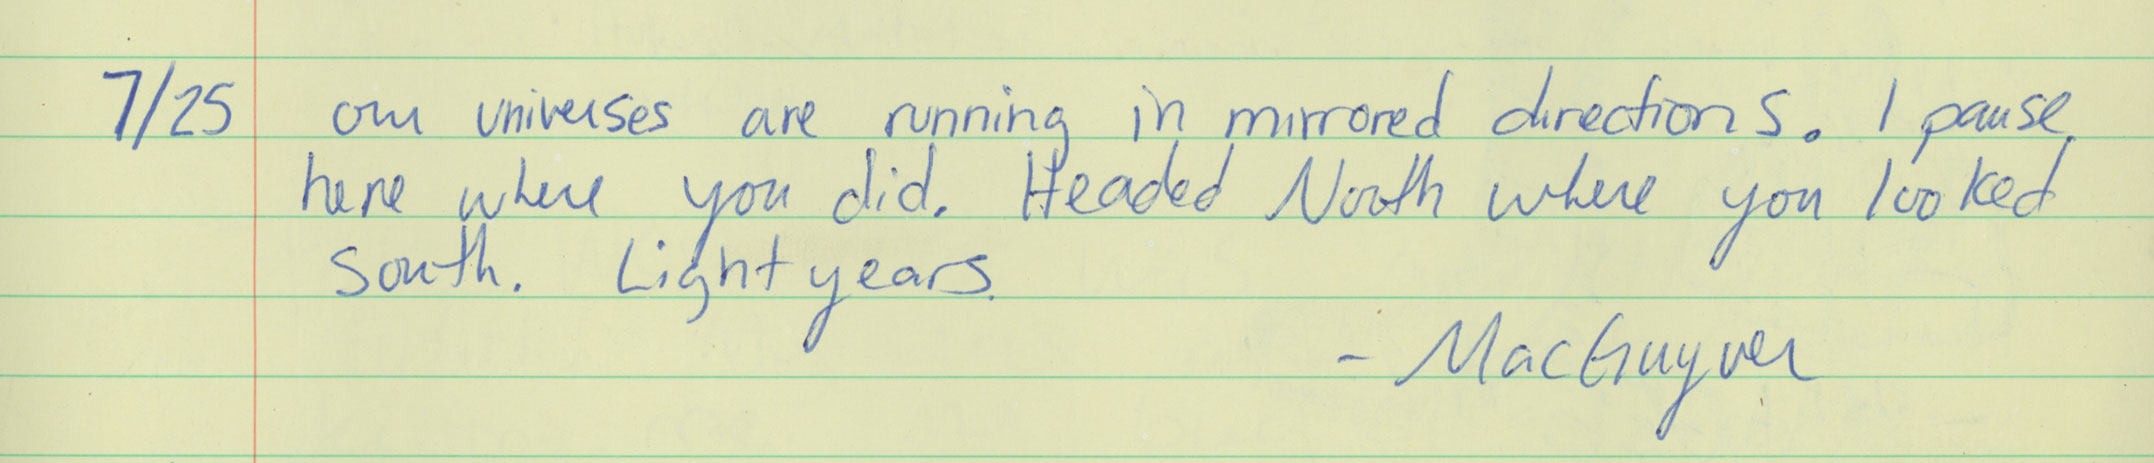 7/25 our universes are running in mirrored directions. I pause
here where you did. Headed North where you looked
south. Light years.
- MacGuyver